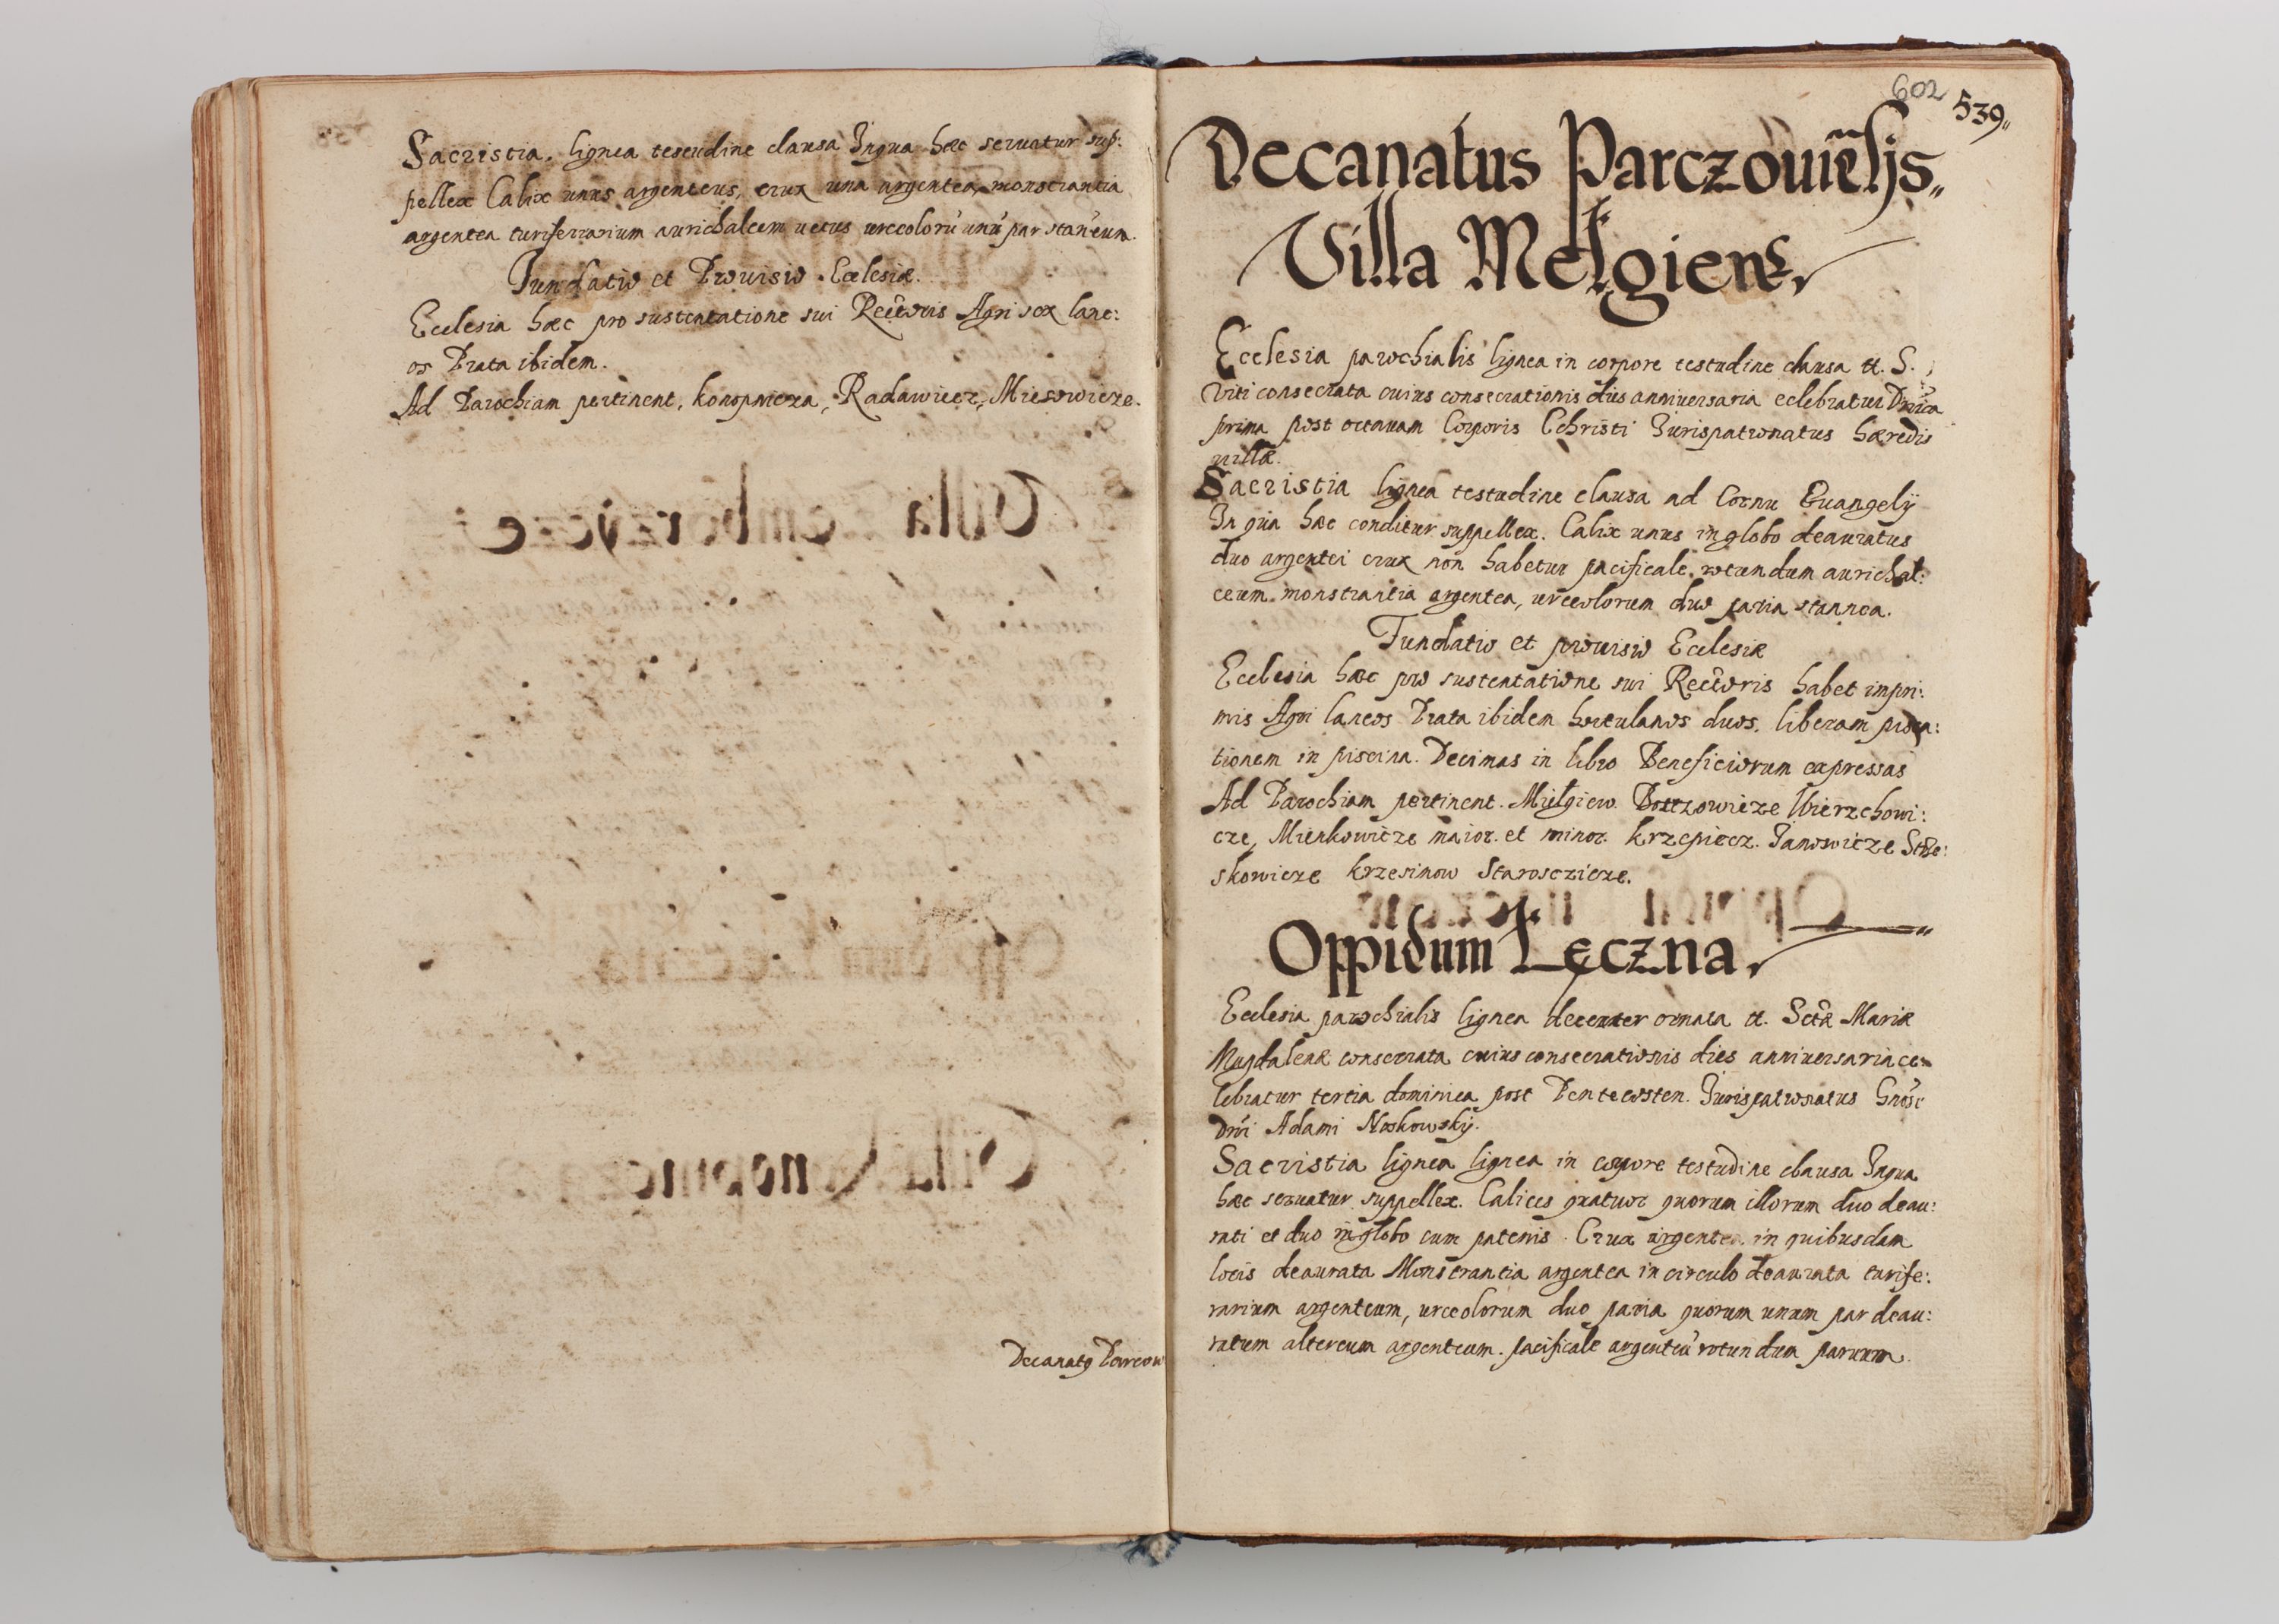 Sacristia. lignea testudine clausa Inqua hæc seruatur sup:
pellex Calix unus argenteus, crux una argentea, monstrantia
argentea turiferrarium aurichalcem uetus urceolorũ unũ par stanẽum.
Fundatio et Prouisio Ecclesiæ.
Ecclesia hæc pro sustentatione sui Rectoris Agri sex lane:
os Prata ibidem.
Ad Parochiam pertinent, Konopnicza, Radawiecz,
Decanatq Parcow
602
539
Decanatus Parczouiẽsis
Villa Mełgiens
Ecclesia parochialis lignea in corpore testudine clausa tt. S.
Viti consecrata cuius consecrationis dies anniuersaria celebratur Dnica
prima post octauam Corporis Christi Jurispatronatus hæredis
uillæ.
Sacristia lignea testudine clausa ad Cornu Euangelij
In qua hæc conditur suppellex. Calix unus in globo deauratus
duo argentei crux non habetur pacificale rotundum aurichal:
ceum monstrantia argentea, urceolorum duo paria stannea.
Fundatio et prouisio Ecclesiæ
Ecclesia hæc pro sustentatione sui Rectoris habet impri:
mis Agri laneos Prata ibidem hortulanos duos, liberam pisca:
tionem in piscina. Decimas in libro Beneficiorum expressas
Ad Parochiam pertinent. Miełgiew. Wierzchowi:
cze, Mienkowicze maior. et minor. Krzepiecz. Janowicze
skowicze Krzesimow Starosczicze.
Oppidum Łęczna
Ecclesia parochialis lignea decenter ornata tt. Sctæ Mariæ
Magdalenæ consecrata cuius consecrationis dies anniuersaria ce=
lebratur tertia dominica post Pentecosten. Jurispatronatus Gnosi
Dni Adami Noskowskij.
Sacristia lignea lignea in corpore testudine clausa Inqua
hæc seruatur suppellex. Calices quatuor quorum illorum duo deau:
rati et duo in globo cum patenis. Crux argentea in quibusdam
locis deaurata Monstrantia argentea in circulo deaurata turife:
rarium argenteum, urceolorum duo paria quorum unum par deau:
ratum altereum argenteum. pacificale argenteũ rotundum paruum.